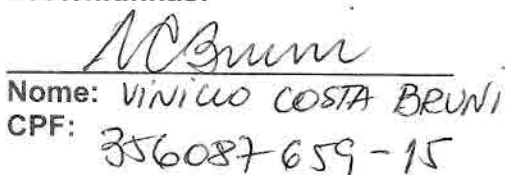 Nome: VINICIO COSTA BRUNI
CPF:
356087659-15